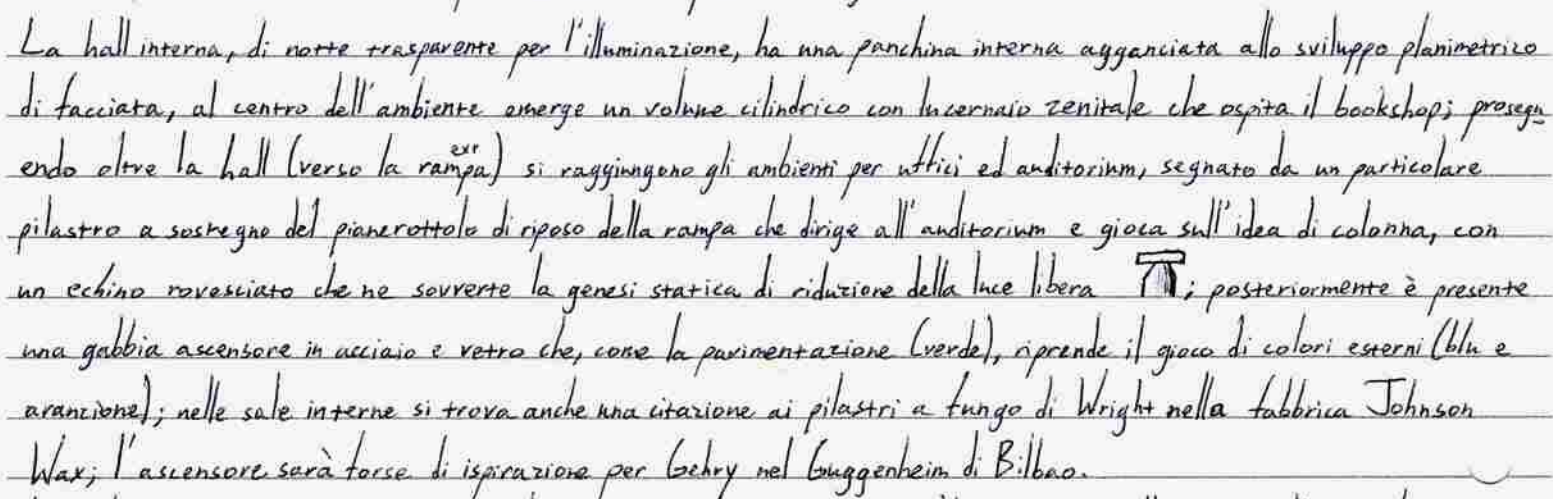 La hall interna, di notte trasparente per l'illuminazione, ha una panchina interna agganciata allo sviluppo planimetrico
di facciata, al centro dell'ambiente emerge un volume cilindrico con lucernaio zenitale che ospita il bookshop; prosegu
endo oltre la hall (verso la rampa ext) si raggiungono gli ambienti per uffici ed auditorium, segnato da un particolare
pilastro a sostegno del pianerottolo di riposo della rampa che dirige all'auditorium e gioca sull'idea di colonna, con
un echino rovesciato che ne sovverte la genesi statica di riduzione della luce libera ; posteriormente è presente
una gabbia ascensore in acciaio e vetro che, come la pavimentazione (verde), riprende il gioco di colori esterni (blu e
arancione); nelle sale interne si trova anche una citazione ai pilastri a fungo di Wright nella fabbrica Johnson
Wax; l'ascensore sarà forse di ispirazione per Gehry nel Guggenheim di Bilbao.